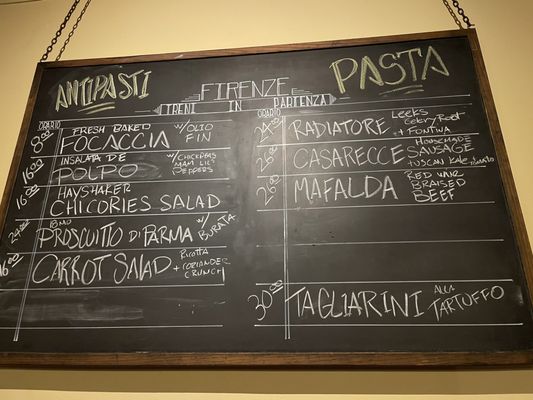 ANTIPASTI
FIRENZE
PASTA
TRENI IN PARTENZA
ORARIO
8:00 FRESH BAKED FOCACCIA W/ OLIO FIN
16:00 INSALATA DE POLPO W/ CHICKPEAS PEPPERS
16:00 HAYSHAKER CHICORIES SALAD
24:00 18MO PROSCUITTO DI PARMA W/ BURATA
16:00 CARROT SALAD RICOTTA + CORIANDER CRUNCH
ORARIO
24:00 RADIATORE LEEKS CELERY ROOT + FONTINA
26:00 CASARECCE HOUSEMADE SAUSAGE TUSCAN KALE + TOMATO
26:00 MAFALDA RED WINE BRAISED BEEF
30:00 TAGLIARINI ALLA TARTUFFO